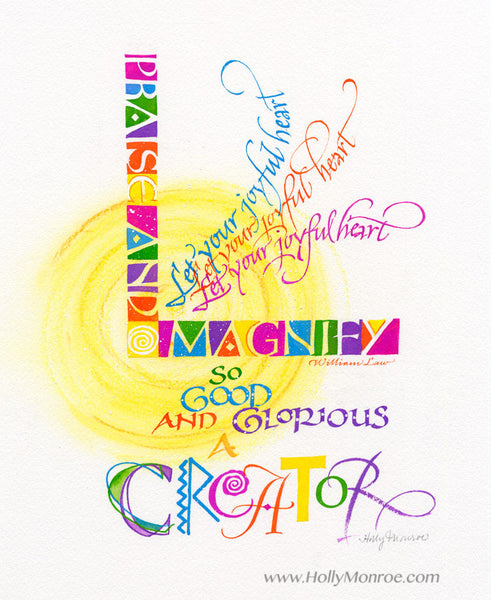 Let your joyful heart
Let your joyful heart
Let your joyful heart
PRAISE AND
MAGNIFY
William Law
SO
GOOD
AND GLORIOUS
A
CREATOR
Holly Monroe
www.HollyMonroe.com